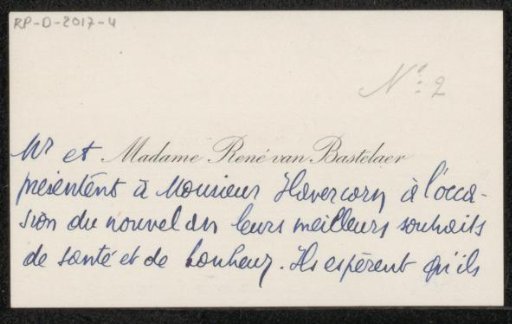 RP-D-2017-4
Nº: 2
Mr et Madame René van Bastelaer
présentent à Monsieur Havercorn à l'occa-
sion du nouvel an leurs meilleurs souhaits
de santé et de bonheur. Ils espèrent qu'ils